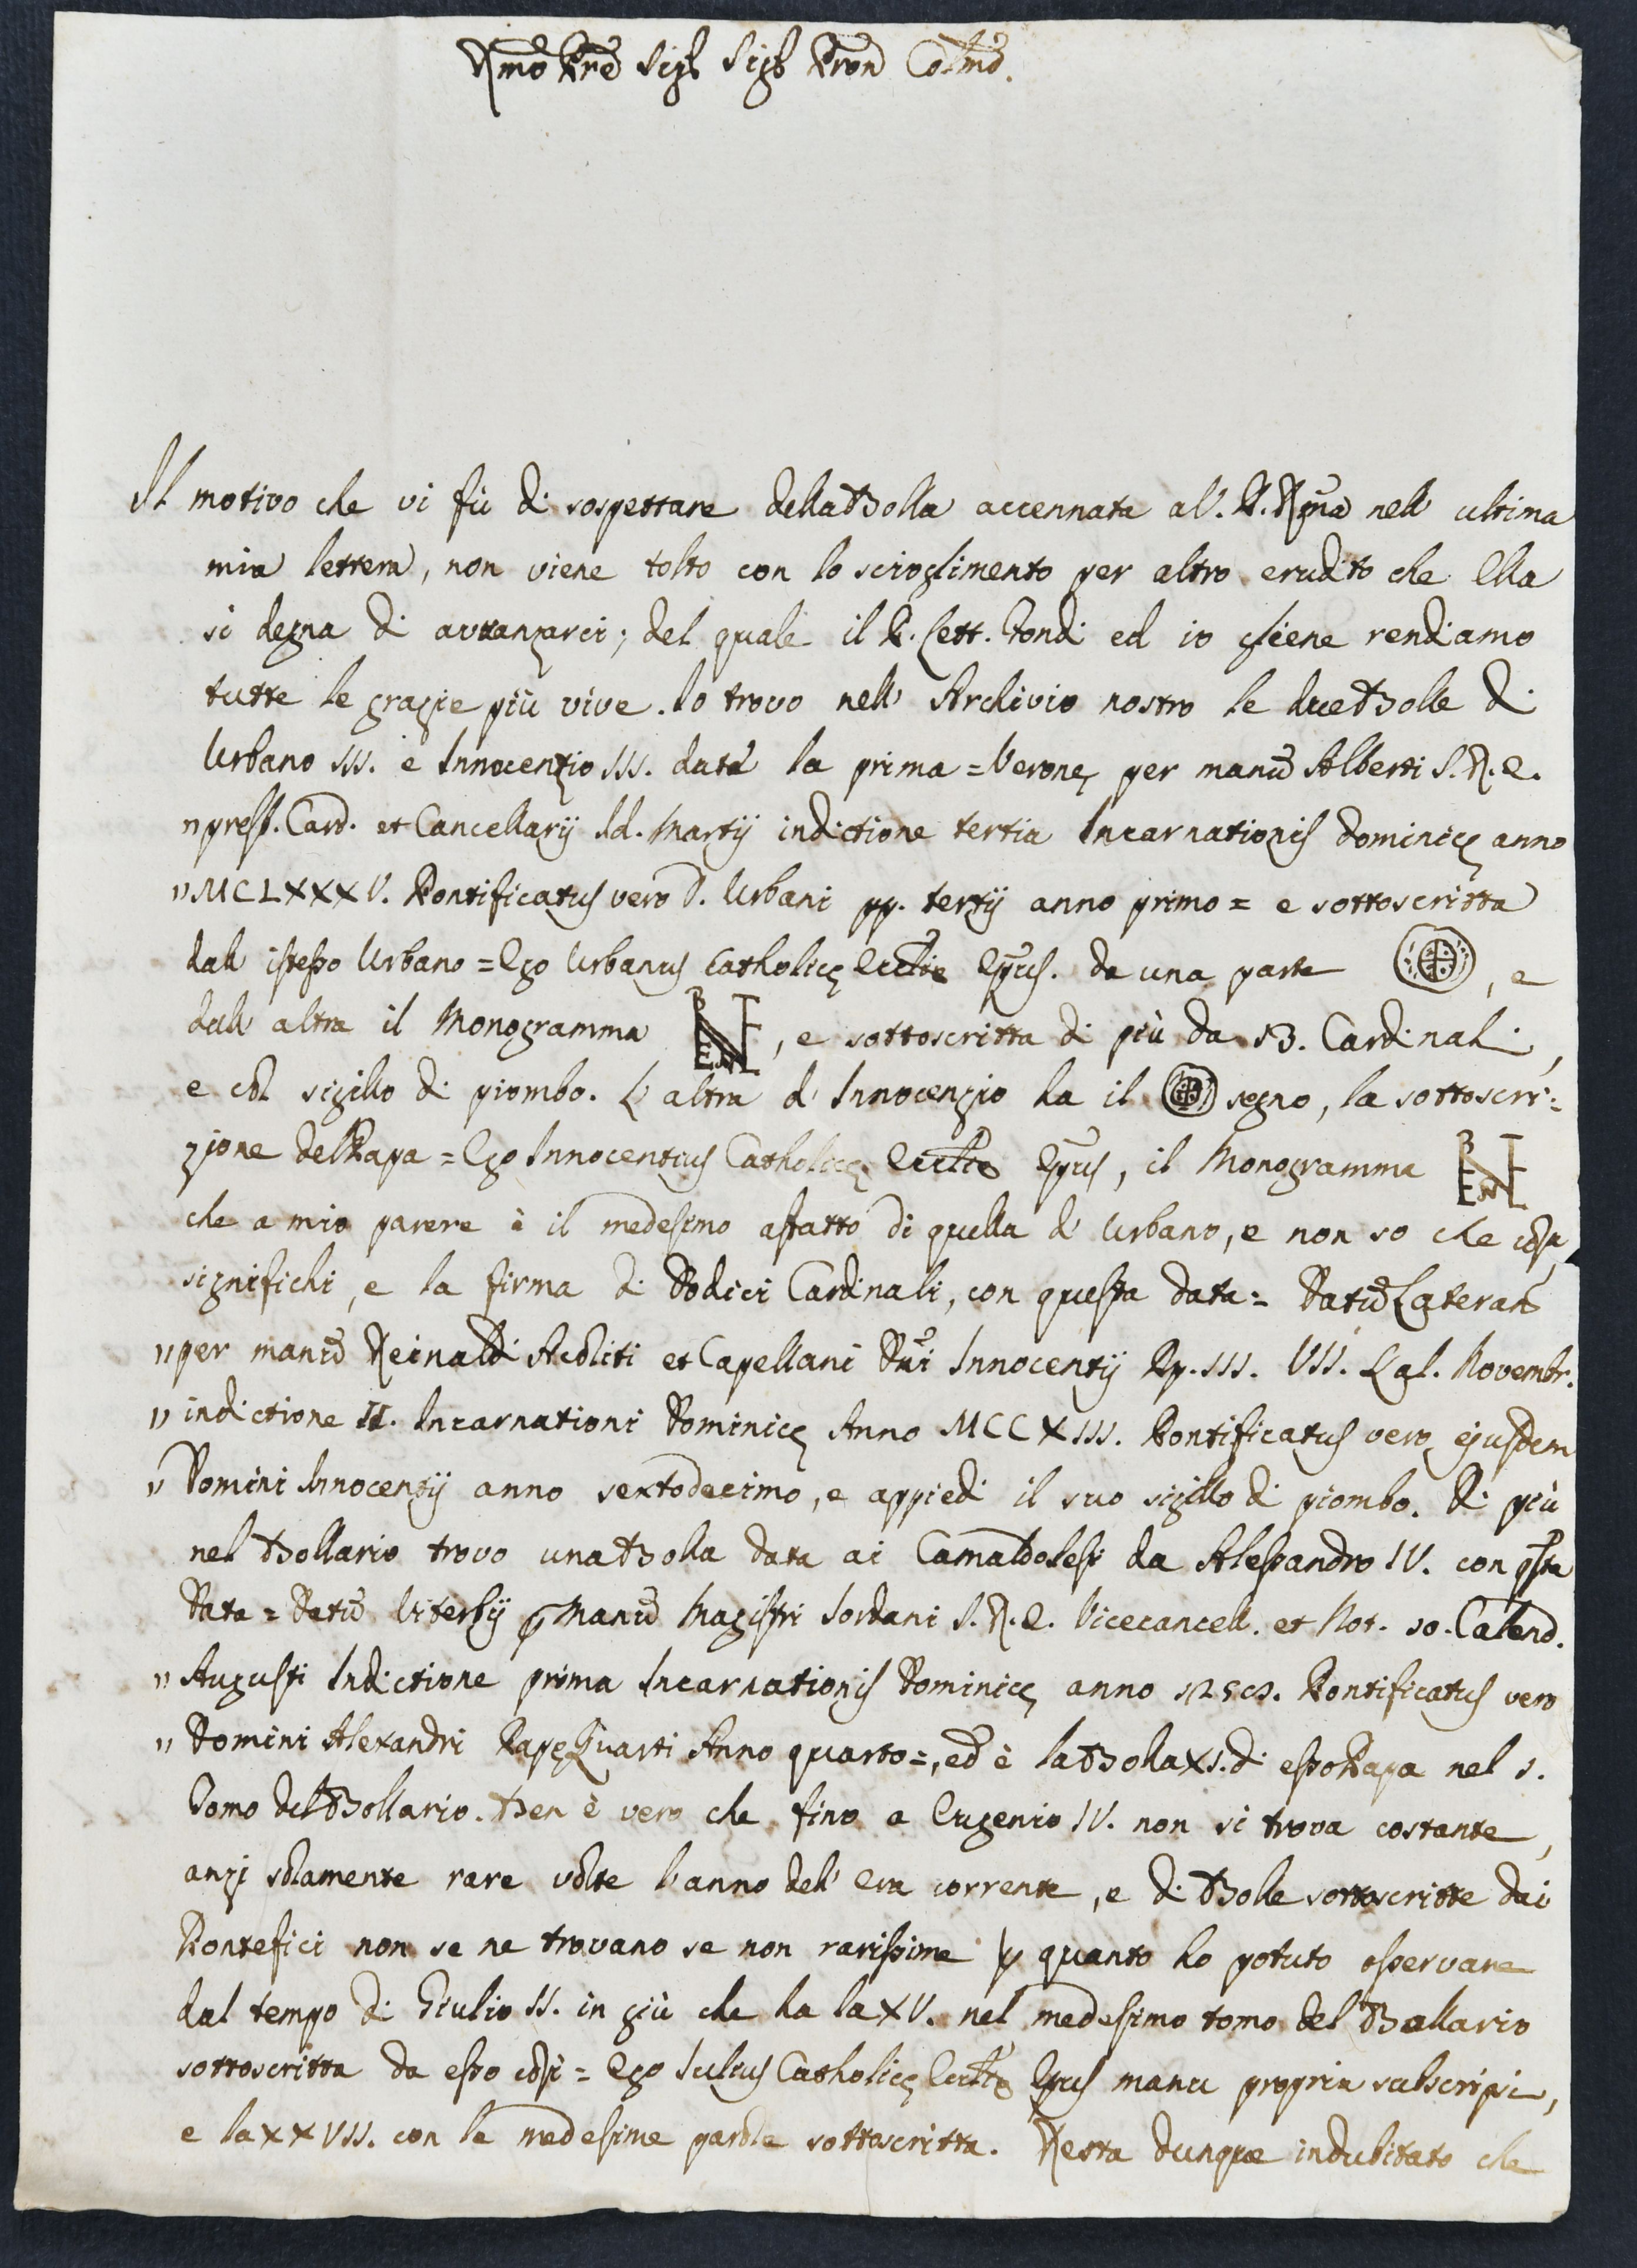 Rmo Pre Sigr Sigr Pron Colmo.
Il motivo che vi fù di sospettare della Bolla accennata a V. P. Rma nell' ultima
mia lettera, non viene tolto con lo scioglimento per altro erudito che Ella
si degna di avvanzarci; del quale il P. Lett. Fondi ed io gliene rendiamo
tutte le grazie più vive. Io trovo nell' Archivio nostro le due Bolle di
Urbano III. e Innocenzio III. data la prima = Veronę per manū Alberti S. R. E.
" presb. Card. et Cancellarij Id. Martij indictione tertia Incarnationis Dominicę anno
" MCLXXXV. Pontificatus vero D. Urbani pp. tertij anno primo = e sottoscritta
dall' istesso Urbano = Ego Urbanus Catholicę Ecclie Epus. da una parte , e
dall' altra il Monogramma , e sottoscritta di più da 13. Cardinali,
e col sigillo di piombo. L' altra d' Innocenzio ha il segno, la sottoscri=
zione del Papa = Ego Innocentius Catholicę Ecclię Epus, il Monogramma
che a mio parere è il medesimo affatto di quella d' Urbano, e non so che cosa
significhi, e la firma di Dodici Cardinali, con questa data = Datū Lateran
" per manū Reinaldi Acoliti et Capellani Dni Innocentij Pp. III. VII. Kal. Novembr.
" indictione II. Incarnationi Dominicę Anno MCCXIII. Pontificatus vero ejusdem
" Domini Innocentij anno sextodecimo, e appiedi il suo sigillo di piombo. Di più
nel Bollario trovo una Bolla data ai Camaldolesi da Alessandro IV. con qsta
Data = Datū Viterbij p Manū Magistri Iordani S. R. E. Vicecancell. et Not. 10. Calend.
" Augusti Indictione prima Incarnationis Dominicę anno 1258. Pontificatus vero
" Domini Alexandri Papę Quarti Anno quarto =, ed è la Bolla XI. di esso Papa nel 1.
Tomo del Bollario. Ben è vero che fino a Eugenio IV. non si trova costante,
anzi solamente rare volte l' anno dell' Era corrente, e di Bolle sottoscritte dai
Pontefici non se ne trovano se non rarissime p quanto ho potuto osservare
dal tempo di Giulio II. in giù che ha la XV. nel medesimo tomo del Bollario
sottoscritta da esso così = Ego Iulius Catholicę Ecclię Epus manu propria subscripsi,
e la XXVII. con le medesime parole sottoscritta. Resta dunque indubitato che